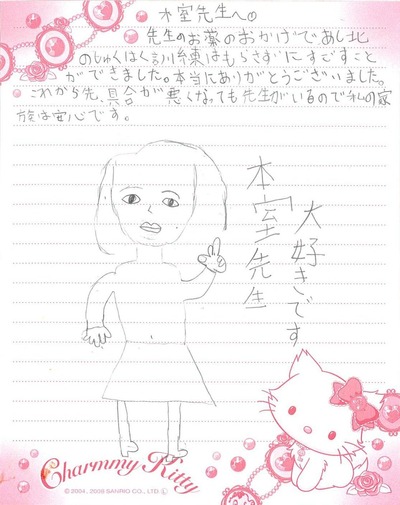 本室先生へ。
先生のお薬のおかげであし北
のしゅくはく訓練はもらさずにすごすこと
ができました。本当にありがとうございました。
これから先、具合が悪くなっても先生がいるので私の家
族は安心です。
本室先生
大好きです
Charmmy Kitty
© 2004, 2006 SANRIO CO., LTD. Ⓛ